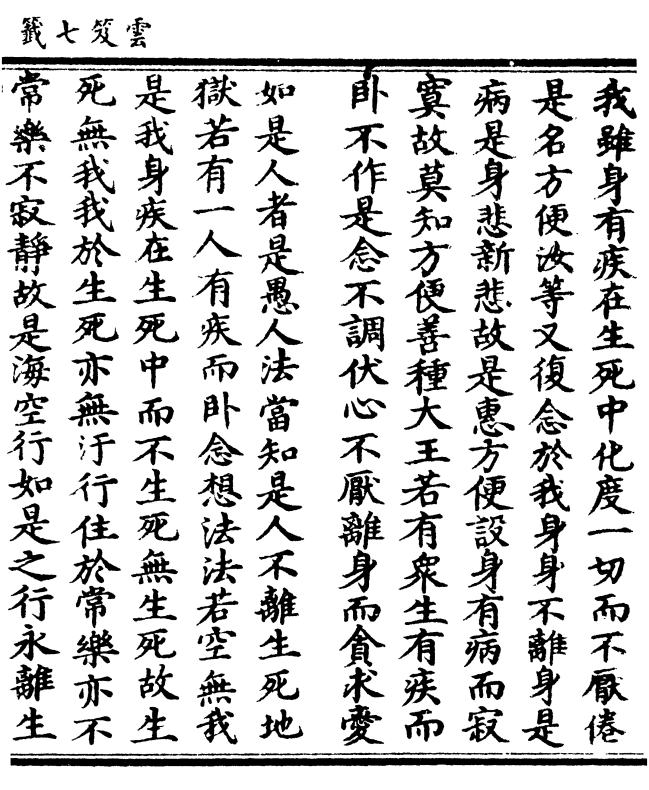 雲笈七籤
我雖身有疾在生死中化度一切而不厭倦
是名方便汝等又復念於我身身不離身是
病是身悲新悲故是惠方便設身有病而寂
寞故莫知方便善種大王若有衆生有疾而
卧不作是念不調伏心不厭離身而貪求愛
如是人者是愚人法當知是人不離生死地
獄若有一人有疾而卧念想法法若空無我
是我身疾在生死中而不生死無生死故生
死無我我於生死亦無汙行住於常樂亦不
常樂不寂靜故是海空行如是之行永離生